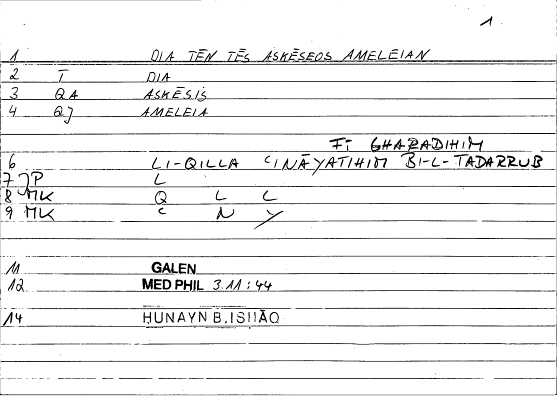 1
1 DIA TĒN TĒS ASKĒSEOS AMELEIAN
2 T DIA
3 QA ASKĒSIS
4 QJ AMELEIA
FĪ GHARADIHIM
6 LI-QILLA ʿINĀYATIHIM BI-L-TADARRUB
7 JP L
8 MK Q L L
9 MK ʿ N Y
11 GALEN
12 MED PHIL 3.11:44
14 HUNAYN B.ISHĀQ